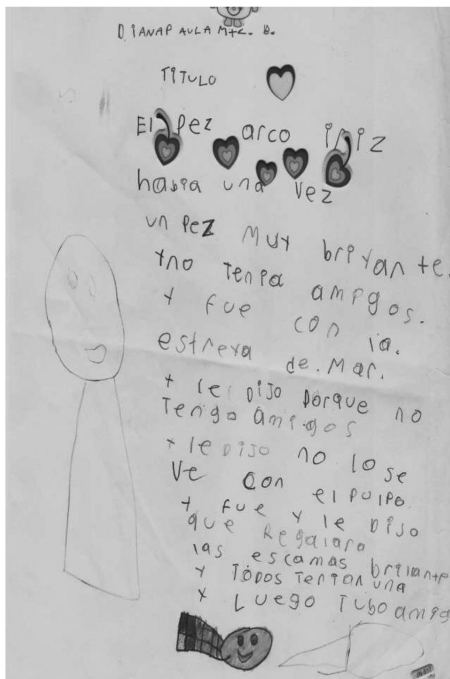 DIANAPAULA M+C. B.
TITULO
El pez arco iriz
habia una vez
un pez muy briyante.
yno Tenia amigos.
y fue con la.
estreya de. Mar.
y le Dijo porque no
Tengo amigos
y le Dijo no lo se
Ve con el pulpo
y fue y le Dijo
que Regalara
las escamas brillante
y Todos Tenian una
y Luego Tubo amig